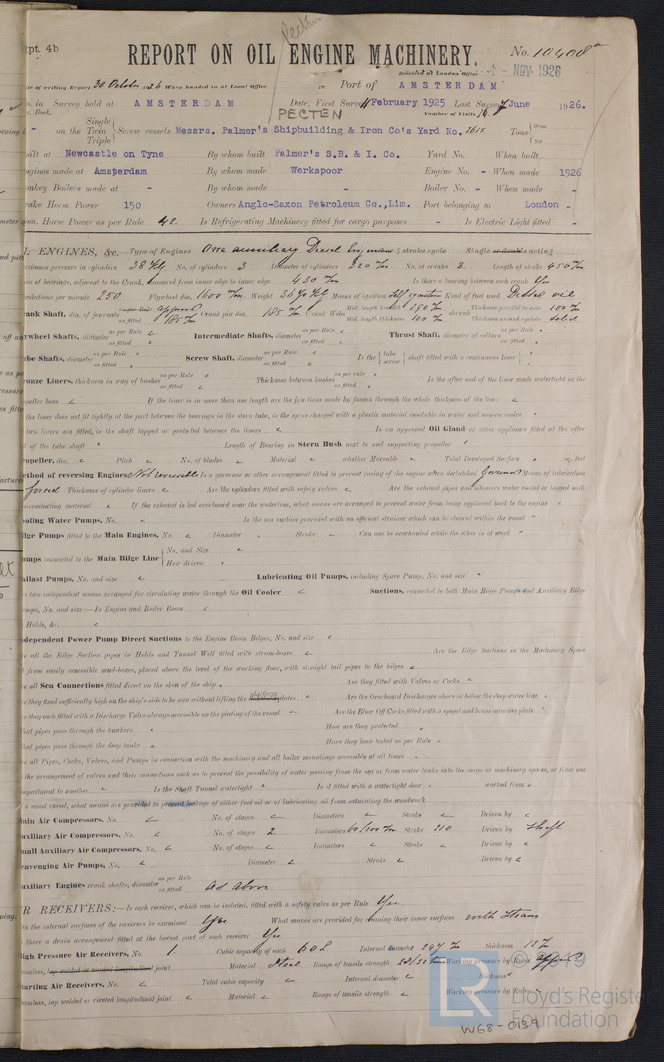 Pecten
pt. 4b
REPORT ON OIL ENGINE MACHINERY.
No. 10408
Received at London Office - NOV. 1926
of writing Report 30 October 1926 When handed in at Local Office in Port of AMSTERDAM
in Survey held at AMSTERDAM Date, First Survey 11 February 1925 Last Survey 7 June 1926.
Book. Number of Visits
PECTEN
- on the Single Twin Triple Screw vessels Messrs. Palmer's Shipbuilding & Iron Co's Yard No. 2615 Tons Gross Net
uilt at Newcastle on Tyne By whom built Palmer's S.B. & I. Co. Yard No. When built
ngines made at Amsterdam By whom made Werkspoor Engine No. - When made 1926
onkey Boilers made at - By whom made - Boiler No. - When made -
rake Horse Power 150 Owners Anglo-Saxon Petroleum Co., Lim. Port belonging to London -
om. Horse Power as per Rule 42. Is Refrigerating Machinery fitted for cargo purposes - Is Electric Light fitted -
L ENGINES, &c.—Type of Engines One auxiliary Diesel Engine 4 stroke cycle Single or double acting
aximum pressure in cylinders 38 Kg. No. of cylinders 3 Diameter of cylinders 320 No. of cranks 3. Length of stroke 450
of bearings, adjacent to the Crank, measured from inner edge to inner edge 430 Is there a bearing between each crank Yes
evolutions per minute 250 Flywheel dia. 1600 Weight Kg Means of ignition Self ignition Kind of fuel used Diesel oil
rank Shaft, dia. of journals as per Rule approved as fitted 185 Crank pin dia. 185 Crank Webs Mid. length breadth 290 Mid. length thickness 100 shrunk Thickness parallel to axis 100 Thickness around eyehole solid
ywheel Shafts, diameter as per Rule as fitted Intermediate Shafts, diameter as per Rule as fitted Thrust Shaft, diameter at collars as per Rule as fitted
ube Shafts, diameter as per Rule as fitted Screw Shaft, diameter as per Rule as fitted Is the tube screw shaft fitted with a continuous liner
ronze Liners, thickness in way of bushes as per Rule as fitted Thickness between bushes as per rule as fitted Is the after end of the liner made watertight in the
opeller boss If the liner is in more than one length are the junctions made by fusion through the whole thickness of the liner
the liner does not fit tightly at the part between the bearings in the stern tube, is the space charged with a plastic material insoluble in water and non-corrosive
two liners are fitted, is the shaft lapped or protected between the liners Is an approved Oil Gland or other appliance fitted at the after
of the tube shaft Length of Bearing in Stern Bush next to and supporting propeller
opeller, dia. Pitch No. of blades Material whether Moveable Total Developed Surface sq. feet
ethod of reversing Engines Not reversible Is a governor or other arrangement fitted to prevent racing of the engine when declutched Governor Means of lubrication
forced Thickness of cylinder liners Are the cylinders fitted with safety valves Are the exhaust pipes and silencers water cooled or lagged with
n-conducting material If the exhaust is led overboard near the waterline, what means are arranged to prevent water from being syphoned back to the engine
ooling Water Pumps, No. Is the sea suction provided with an efficient strainer which can be cleared within the vessel
ilge Pumps fitted to the Main Engines, No. Diameter Stroke Can one be overhauled while the other is at work
umps connected to the Main Bilge Line No. and Size How driven
allast Pumps, No. and size Lubricating Oil Pumps, including Spare Pump, No. and size
two independent means arranged for circulating water through the Oil Cooler Suctions, connected to both Main Bilge Pumps and Auxiliary Bilge
umps, No. and size:—In Engine and Boiler Room
Holds, &c.
dependent Power Pump Direct Suctions to the Engine Room Bilges, No. and size
all the Bilge Suction pipes in Holds and Tunnel Well fitted with strum-boxes Are the Bilge Suctions in the Machinery Space
from easily accessible mud-boxes, placed above the level of the working floor, with straight tail pipes to the bilges
all Sea Connections fitted direct on the skin of the ship Are they fitted with Valves or Cocks
they fixed sufficiently high on the ship's side to be seen without lifting the platform plates Are the Overboard Discharges above or below the deep water line
they each fitted with a Discharge Valve always accessible on the plating of the vessel Are the Blow Off Cocks fitted with a spigot and brass covering plate
hat pipes pass through the bunkers How are they protected
hat pipes pass through the deep tanks Have they been tested as per Rule
all Pipes, Cocks, Valves, and Pumps in connection with the machinery and all boiler mountings accessible at all times
the arrangement of valves and their connections such as to prevent the possibility of water passing from the sea or from water tanks into the cargo or machinery spaces, or from one
mpartment to another Is the Shaft Tunnel watertight Is it fitted with a watertight door worked from
a wood vessel, what means are provided to prevent leakage of either fuel oil or of lubricating oil from saturating the woodwork
ain Air Compressors, No. No. of stages Diameters Stroke Driven by
uxiliary Air Compressors, No. No. of stages 2. Diameters 60/200 Stroke 210 Driven by shaft
mall Auxiliary Air Compressors, No. No. of stages Diameters Stroke Driven by
cavenging Air Pumps, No. Diameter Stroke Driven by
uxiliary Engines crank shafts, diameter as per Rule as fitted as above
R RECEIVERS:—Is each receiver, which can be isolated, fitted with a safety valve as per Rule Yes.
n the internal surfaces of the receivers be examined Yes What means are provided for cleaning their inner surfaces with steam
there a drain arrangement fitted at the lowest part of each receiver Yes
igh Pressure Air Receivers, No. 1. Cubic capacity of each 60 L Internal diameter 247 thickness 12
eamless, lap welded or riveted longitudinal joint Material Steel Range of tensile strength Working pressure by Rules approved
tarting Air Receivers, No. Total cubic capacity Internal diameter thickness
eamless, lap welded or riveted longitudinal joint Material Range of tensile strength Working pressure by Rules
LR © 2019
Lloyd's Register
Foundation
W68-0139